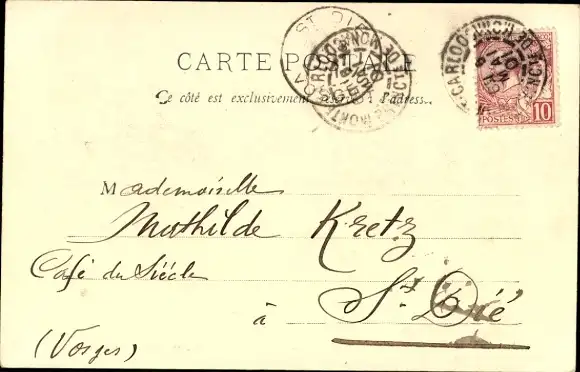 CARTE POSTALE
Ce côté est exclusivement réservé à l'adresse.
ST DIÉ
VOSGES
MONTE-CARLO
PTÉ DE MONACO
POSTES
10
Mademoiselle
Mathilde Kretz
Café du Siècle
à St Dié
(Vosges)